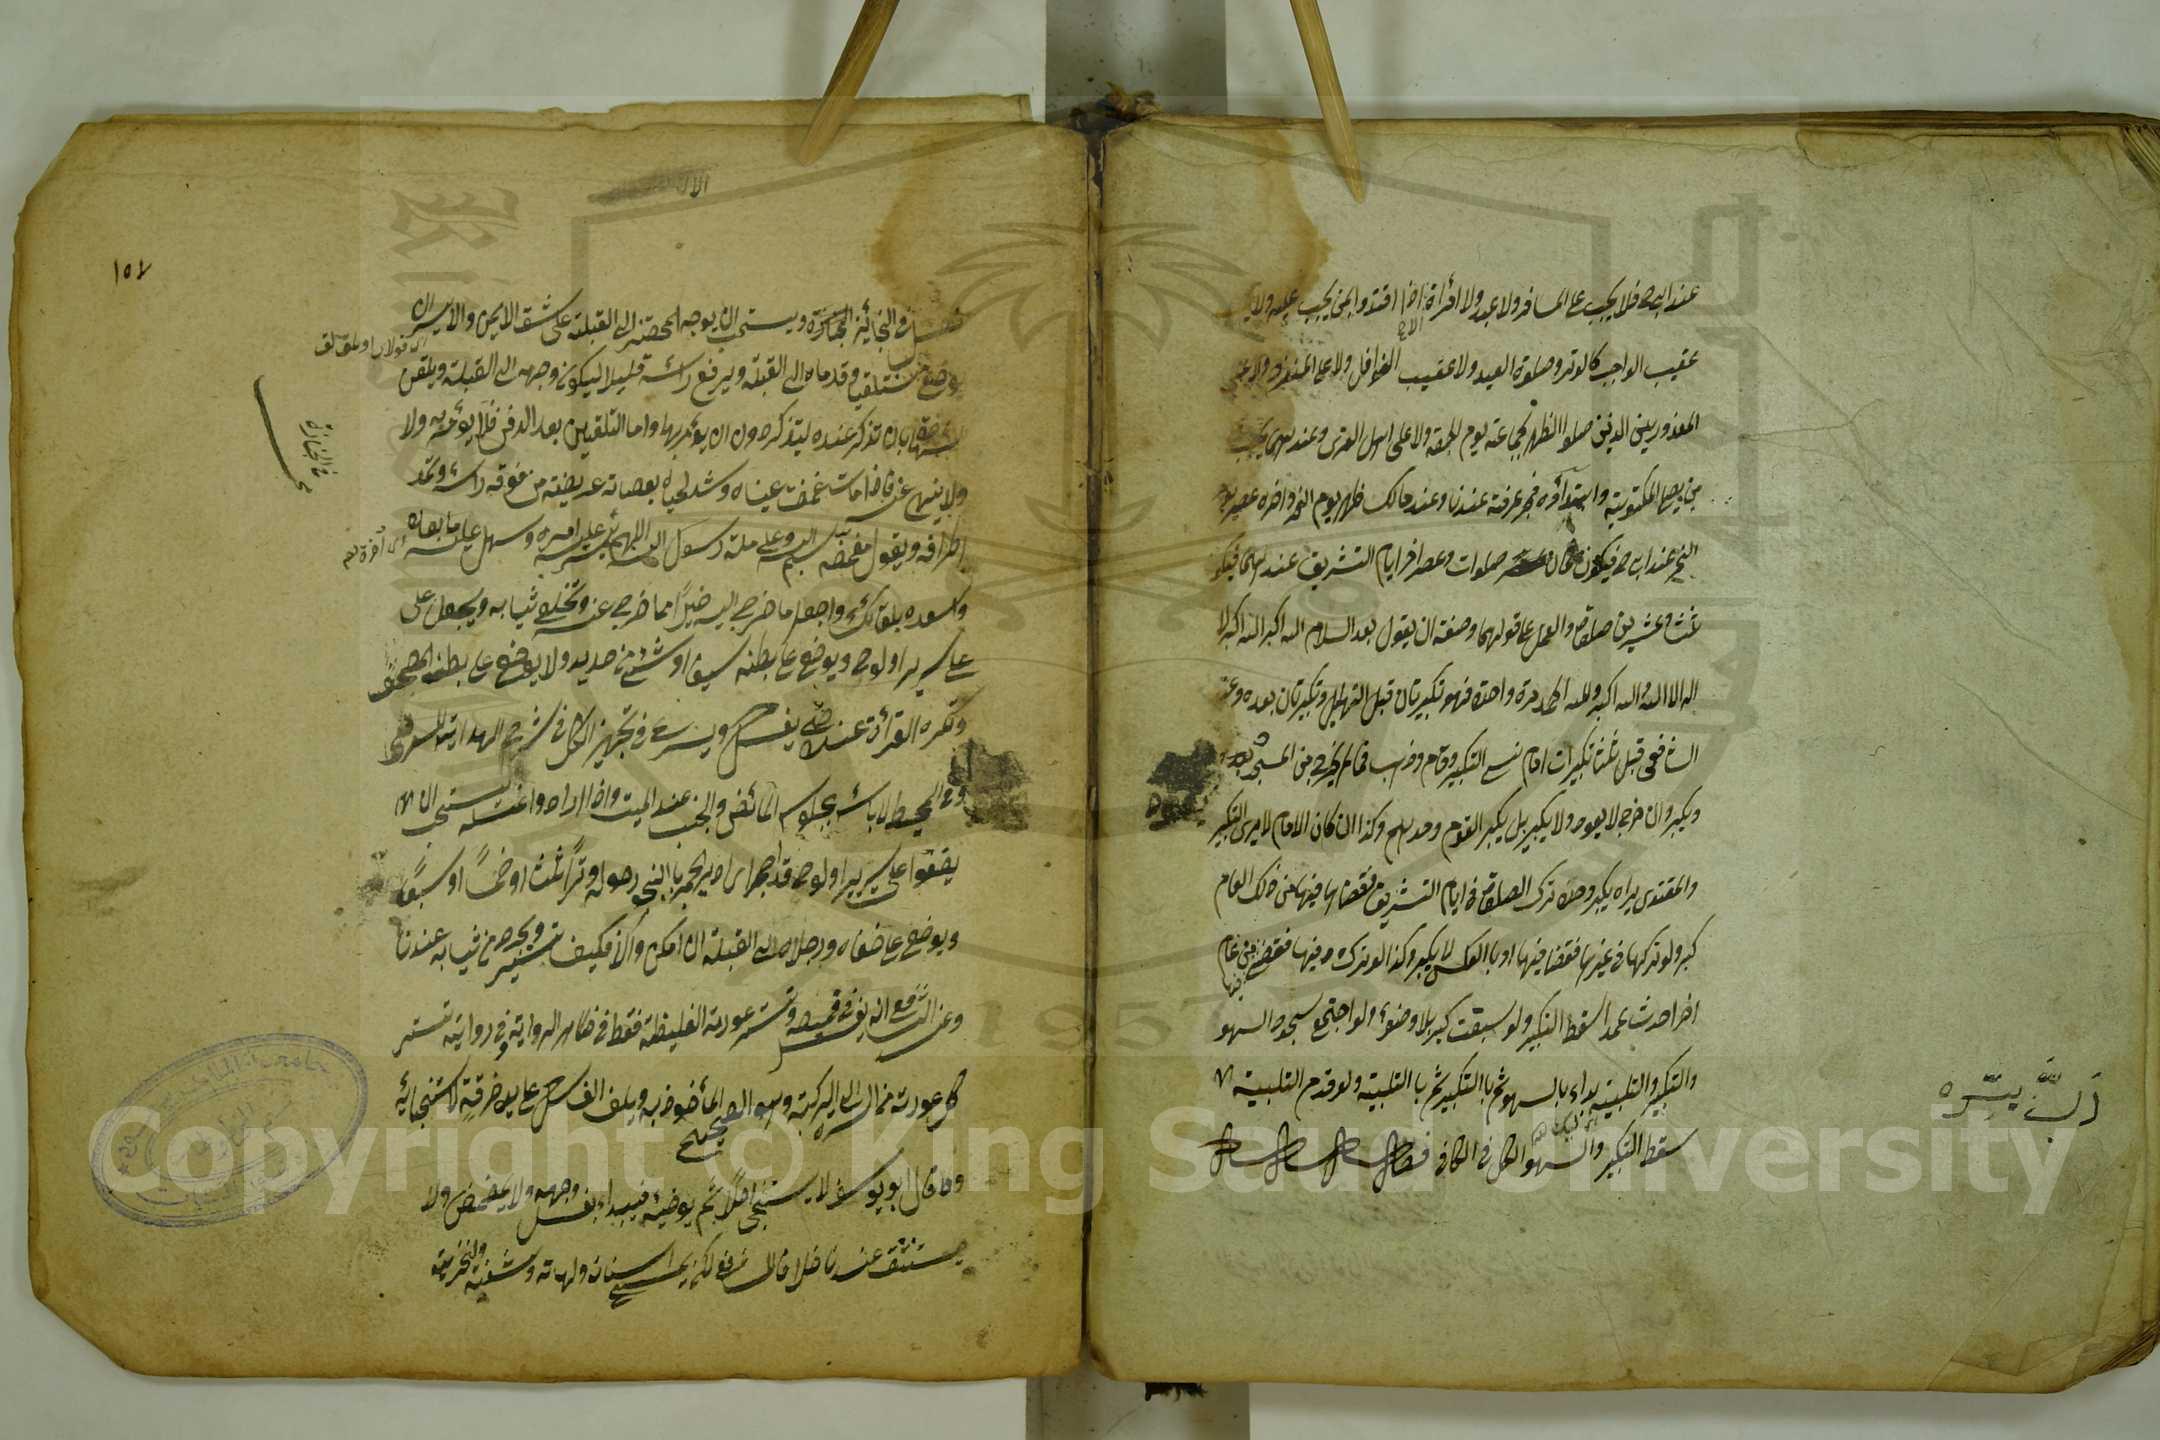 عند ابى ح فلا يجب على المسافر ولا عبد ولا امرأة اذا اقتدوا بمن يجب عليه ولا
عقيب الواجب كالوتر وصلوة العيد ولا عقيب النوافل ولا على المنفرد ولا على
المعذورين الذين صلوا الظهر بجماعة يوم الجمعة ولا على اهل القرى وعندهما يجب
من يصلى المكتوبة وابتداؤه فجر عرفة عندنا وعند مالك ظهر يوم النحر واخره عصر يوم
النحر عند ابى ح فيكون ثمان صلوات وعصر اخر ايام التشريق عندهما فيكون
ثلث وعشرين صلوة والعمل على قولهما وصفته ان يقول بعد السلام الله اكبر الله اكبر لا
اله الا الله والله اكبر ولله الحمد مرة واحدة فهو تكبيرتان قبل التهليل وتكبيرتان بعده وعند
الشافعى قبل ثلث تكبيرات امام نسى التكبير وقام وذهب فما لم يخرج من المسجد يعود
ويكبر وان خرج لا يعود ولا يكبر بل يكبر القوم وحدهم وكذا ان كان الامام لا يرى التكبير
والمقتدى يراه يكبر وحده ترك الصلوة فى ايام التشريق فقضاها فيها من ذلك العام
كبر ولو تركها فى غيرها فقضا فيها او بالعكس لا يكبر وكذا لو ترك فيها فقضى من عام
اخر احدث عمدا سقط التكبير ولو سبقت كبر بلا وضوء ولو اجتمع سجود السهو
والتكبير والتلبية بداء بالسهو ثم بالتكبير ثم بالتلبية ولو قدم التلبية
سقط التكبير والسهو الكل فى الكافى
رب يسره
١٥٧
فصل فى الجنائز ويستحب ان يوجه المحتضر الى القبلة على شقه الايمن والايسر ان
وضع مستلقيا وقدماه الى القبلة ويرفع راسه قليلا ليكون وجهه الى القبلة ويلقن
بان تذكر عنده ليتذكر دون ان يؤمر بها واما التلقين بعد الدفن فلا يؤمر به ولا
ولا ينهى عنه فاذا مات غمضت عيناه وشد لحياه بعصابة عريضة من فوق راسه وتمد
اطرافه ويقول مغمضه بسم الله وعلى ملة رسول الله اللهم يسر عليه امره وسهل عليه ما بعده
واسعده بلقائك واجعل ما خرج اليه خيرا مما خرج عنه وتخلع ثيابه ويجعل على
على سرير او لوح ويوضع على بطنه سيف او شئ من حديد ولا يوضع على بطنه المصحف
وتكره القرأة عنده حتى يغسل ويسرع فى تجهيز الكل فى شرح الهداية للسروجى
وفى المحيط لا باس بجلوس الحائض والجنب عند الميت واذا ارادوا غسله يستحب ان
يضعوا على سرير او لوح قد اجمر اى ادير المجمر بالبخور حوله وترا ثلثا او خمسا او سبعا
ويوضع على قفاه ورجلاه الى القبلة ان امكن والا فكيف تيسر ويجرد من ثيابه عندنا
وعند الشافعى انه يغسل فى قميصه وتستر عورته الغليظة فقط فى ظاهر الرواية وفى رواية تستر
كل عورته من السرة الى الركبة وهو الصحيح المأخوذ به ويلف الغاسل على يده خرقة لاستنجائه
وقال ابو يوسف لا يستنجى اصلا ثم يوضيه فيبداء بغسل وجهه ولا يمضمض ولا
يستنشق عندنا خلافا للشافعى لكن يمسح اسنانه ولهاته وشفتيه ومنخريه
فى الجنازة